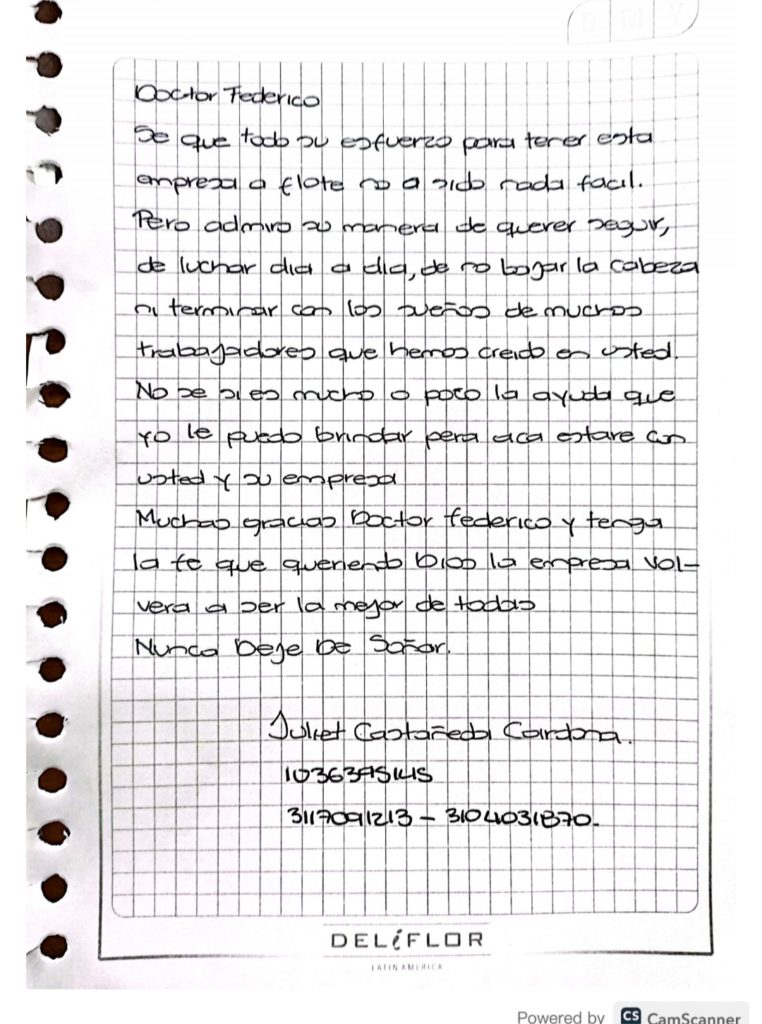 Doctor Federico
Se que todo su esfuerzo para tener esta
empresa a flote no a sido nada facil.
Pero admiro su manera de querer seguir,
de luchar dia a dia, de no bajar la cabeza
ni terminar con los sueños de muchos
trabajadores que hemos creido en usted.
No se si es mucho o poco la ayuda que
yo le puedo brindar pera aca estare con
usted y su empresa
Muchas gracias Doctor Federico y tenga
la fe que queriendo Dios la empresa vol-
vera a ser la mejor de todas
Nunca Deje De Soñar.
Juliet Castañeda Cardona.
3117091213 - 3104031870.
DELiFLOR
LATIN AMERICA
Powered by CS CamScanner